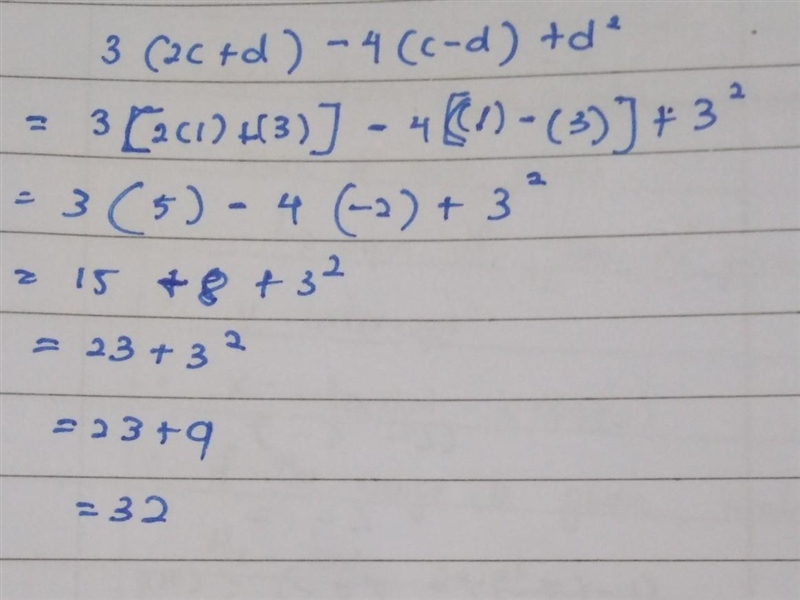 3 (2c + d) - 4 (c - d) + d²
= 3 [2(1) + (3)] - 4 [(1) - (3)] + 3²
= 3 (5) - 4 (-2) + 3²
= 15 + 8 + 3²
= 23 + 3²
= 23 + 9
= 32